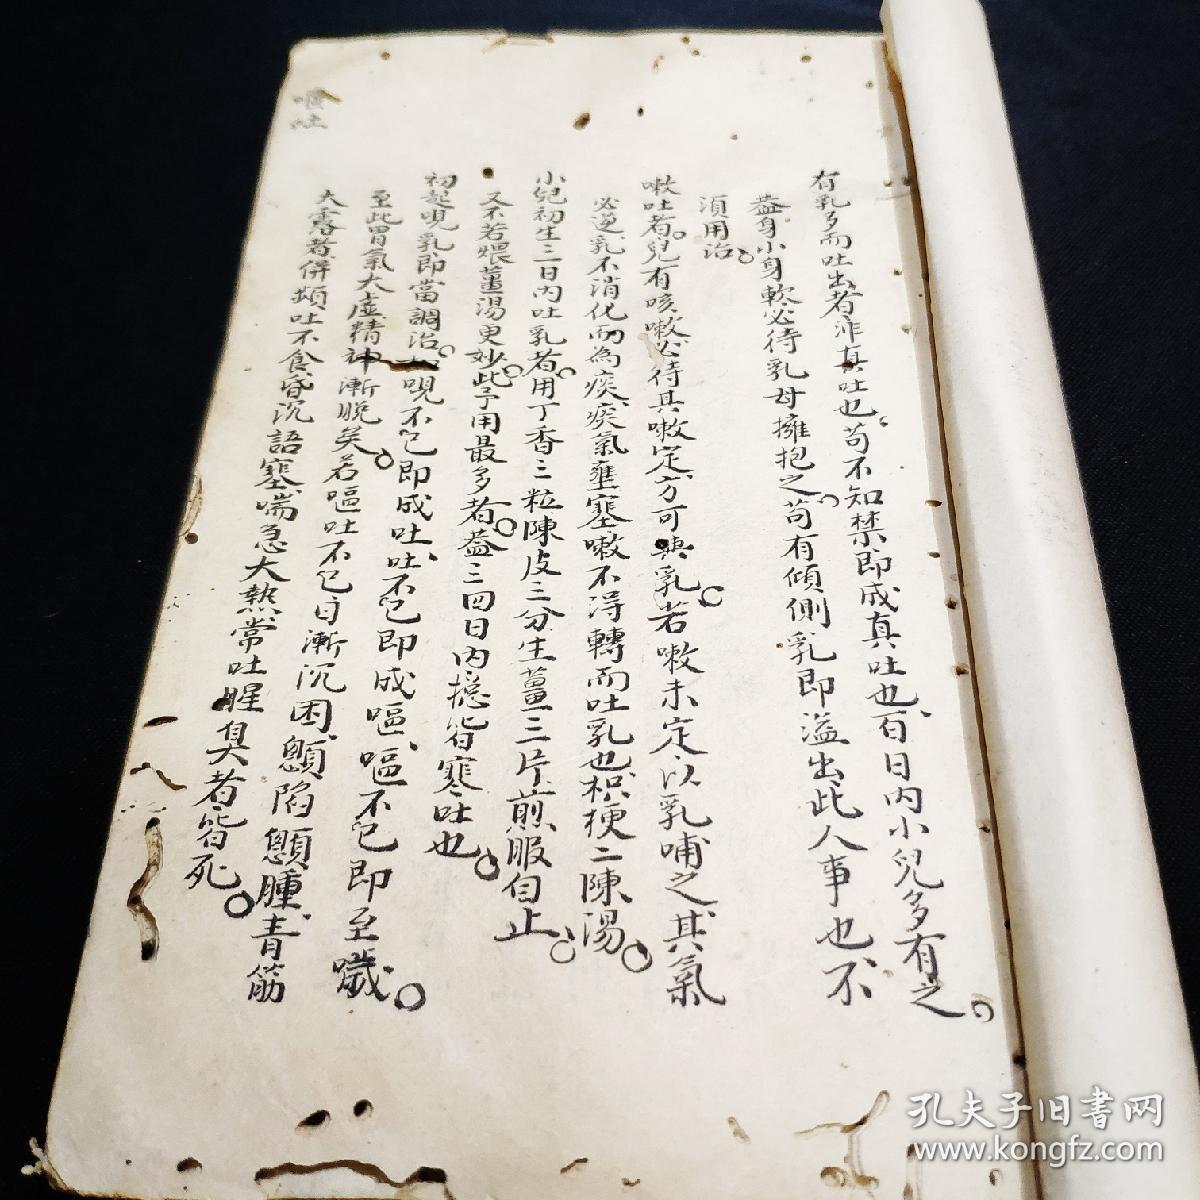 有乳多而吐出者非真吐也苟不知禁即成真吐也百日内小兒多有之
蓋身小身軟必待乳母擁抱之苟有傾側乳即溢出此人事也不
須用治
嗽吐者兒有咳嗽必待其嗽定方可與乳若嗽未定以乳哺之其氣
必逆乳不消化而為痰痰氣壅塞嗽不得轉而吐乳也枳梗二陳湯
小兒初生三日內吐乳者用丁香三粒陳皮三分生薑三片煎服自止
又不若煨薑湯更妙此予用最多者蓋三四日內總皆寒吐也
初起哯乳即當調治如哯不已即成吐吐不已即成嘔嘔不已即至噦
至此胃氣大虛精神漸脫矣若嘔吐不已日漸沉困顖陷顖腫青筋
大露者併頻吐不食昏沉語塞喘急大熱常吐腥臭者皆死
吐
孔夫子旧书网
www.kongfz.com